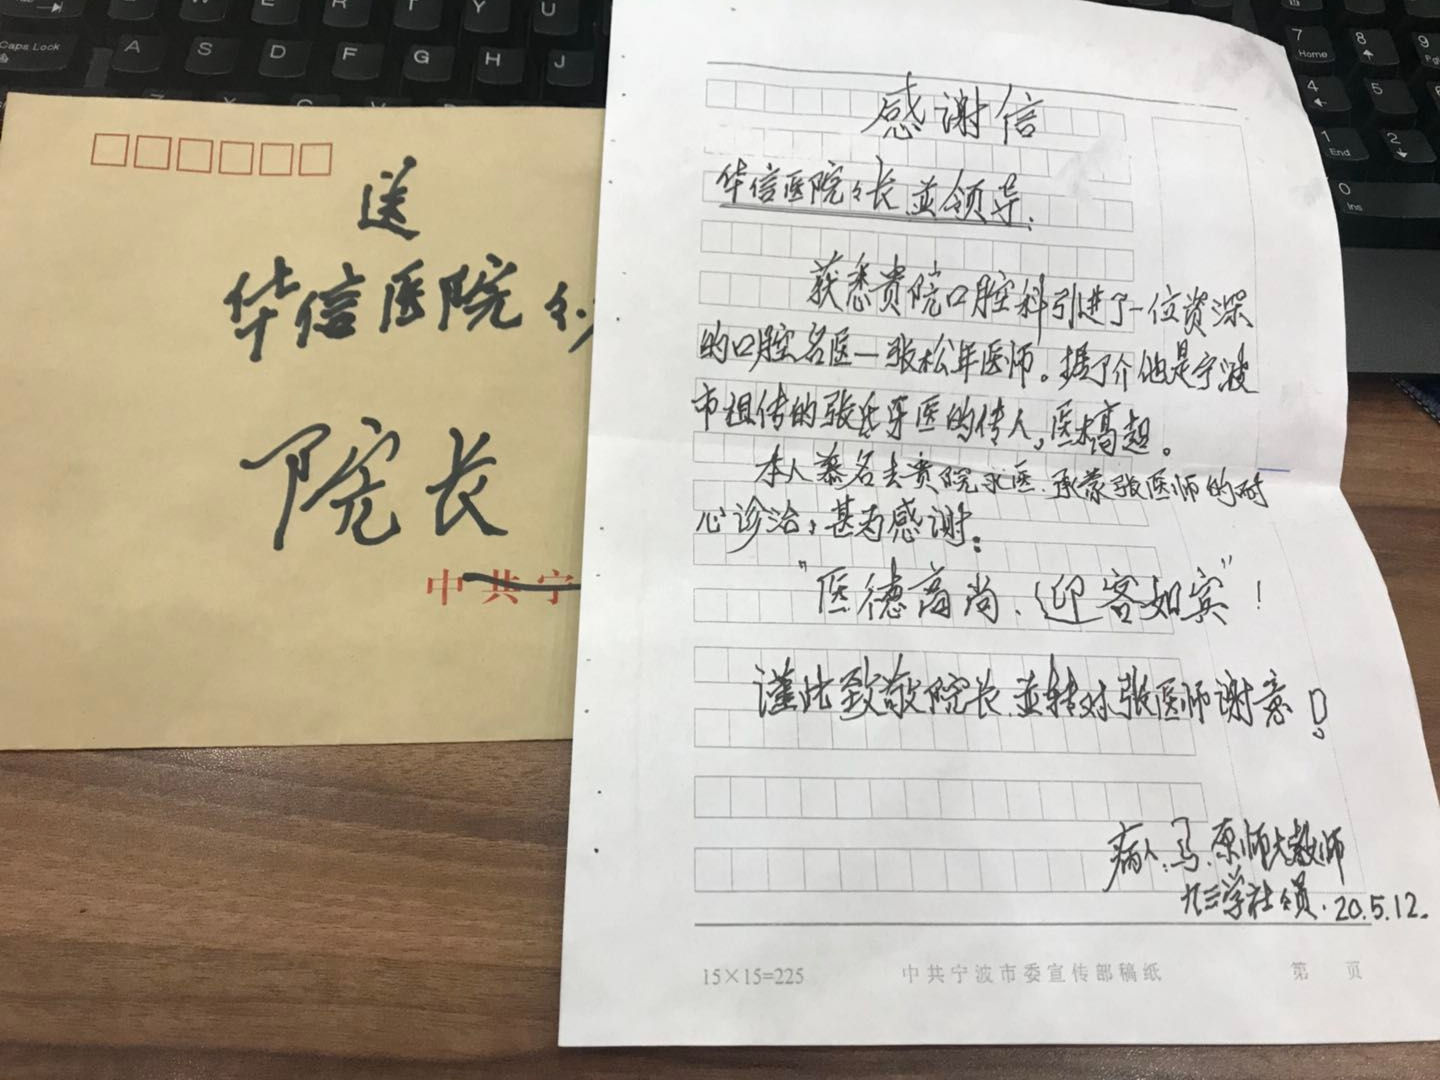 送
华信医院
院长
中共宁
感谢信
华信医院々长並领导:
获悉贵院口腔科引进了一位资深
的口腔名医—张松年医师。据了介他是宁波
市祖传的张氏牙医的传人,医术高超。
本人慕名去贵院求医.承蒙张医师的耐
心诊治,甚为感谢:
"医德高尚.迎客如宾"!
谨此致敬院长.並转对张医师谢意!
病人:马.原师大教师
九三学社社员.20.5.12.
15×15=225
中共宁波市委宣传部稿纸
第 页
Caps Lock
A
S
D
F
G
H
J
R
T
Y
U
7
Home
8
9
4
5
1
End
2
0
Ins